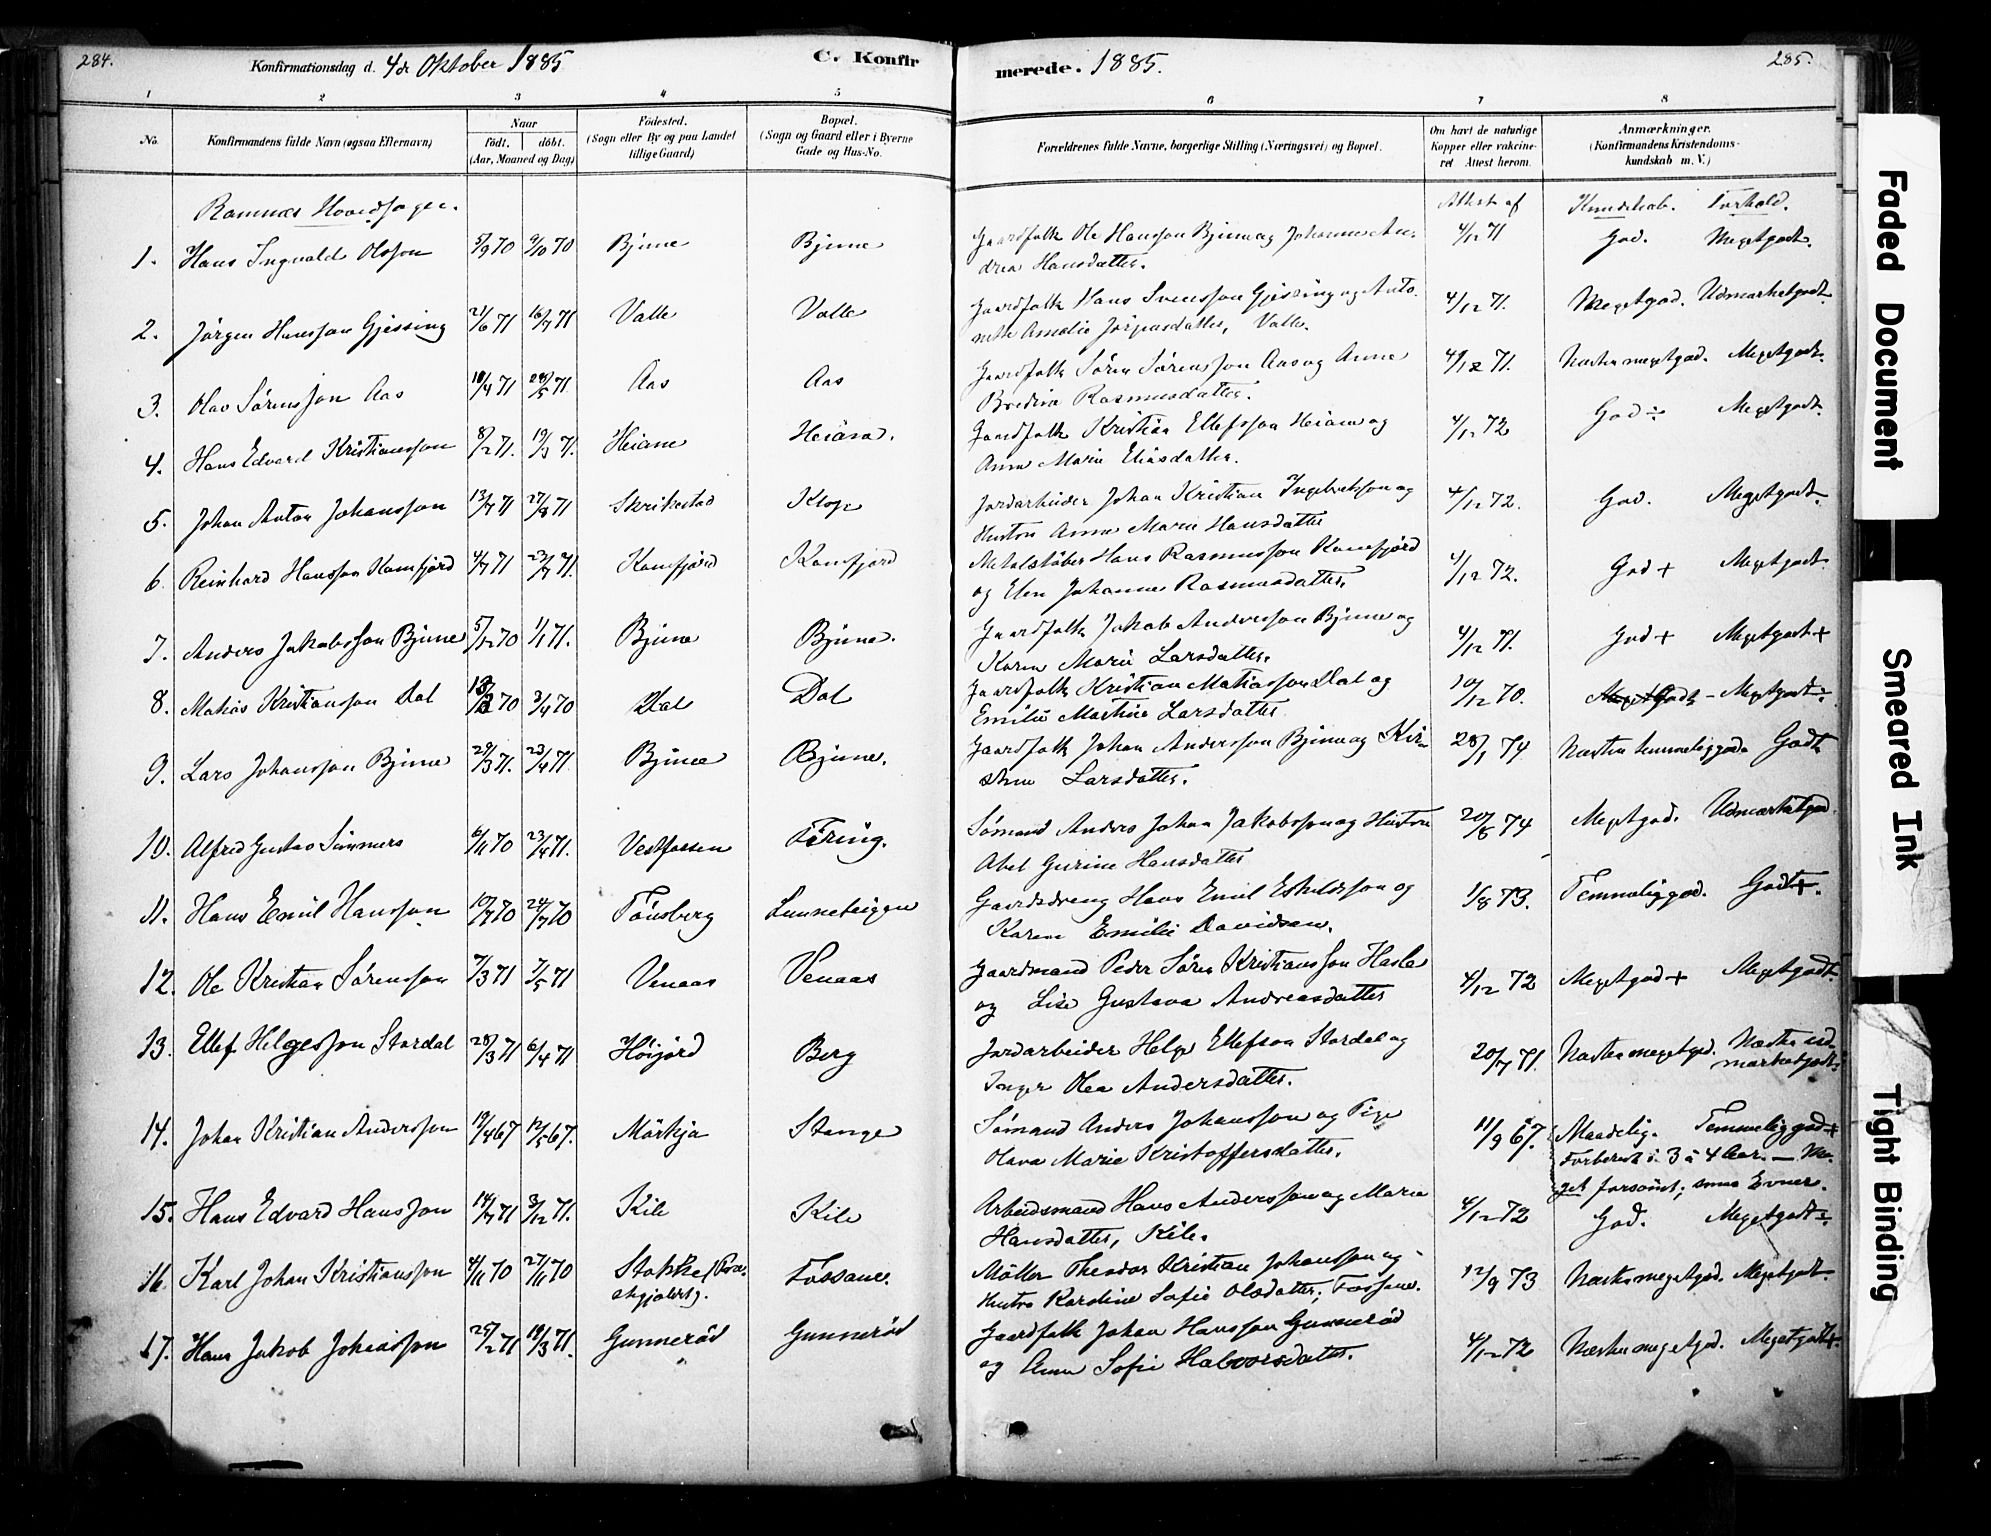 284.
Konfirmationsdag d. 4de Oktober 1885
C. Konfir
merede. 1885.
285.
1 2 3 4 5 6 7 8
No.
Konfirmandens fulde Navn (ogsaa Efternavn)
Naar
født. døbt.
(Aar, Maaned og Dag)
Fødested.
(Sogn eller By og paa Landet
tillige Gaard)
Bopæl.
(Sogn og Gaard eller i Byerne
Gade og Hus-No.
Forældrenes fulde Navne, borgerlige Stilling (Næringsvei) og Bopæl.
Om havt de naturlige
Kopper eller vakcine-
ret Attest herom.
Anmærkninger.
(Konfirmandens Kristendoms-
kundskab m. V.)
Ramnæs Hovedsogn.
Attest af
Kundskab. Forhold.
1. Hans Ingvald Olsson 5/9 70 9/10 70 Bjune Bjune
Gaardfolk Ole Hansson Bjune og Johanne An-
drea Hansdatter.
4/12 71 God. Megetgodt.
2. Jørgen Hansson Gjessing 21/6 71 16/7 71 Valle Valle
Gaardfolk Hans Svensson Gjessing og Anto-
nette Amalie Jørgensdatter, Valle.
4/12 71. Megetgod. Udmærketgodt
3. Olav Sørensson Aas 10/4 71 28/5 71 Aas Aas
Gaardfolk Søren Sørensson Aas og Anne
Bredine Rasmusdatter.
4/12 71. Næsten megetgod. Megetgodt.
4. Hans Edvard Kristiansson 8/2 71. 19/3 71. Heiane Heiane.
Gaardfolk Kristian Ellefsson Heiane og
Anne Marie Eliasdatter.
4/12 72 God ÷ Megetgodt.
5. Johan Anton Johansson 13/7 71 27/8 71 Skrikestad Klop
Jordarbeider Johan Kristian Ingebretsson og
Hustru Anne Marie Hansdatter
4/12 72. God. Megetgodt.
6. Reinhard Hansson Kamfjord 4/7 71 23/7 71. Kamfjord Kamfjord
Metalstøber Hans Rasmusson Kamfjord
og Elen Johanne Rasmusdatter.
4/12 72. God + Megetgodt.
7. Anders Jakobsson Bjune 5/12 70 1/1 71. Bjune Bjune.
Gaardfolk Jakob Andersson Bjune og
Karen Marie Larsdatter.
4/12 71. God + Megetgodt +
8. Matias Kristiansson Dal 70 3/4 70 Dal Dal
Gaardfolk Kristian Matiasson Dal og
Emilie Martine Larsdatter
10/12 70. Megetgodt ÷
9. Lars Johansson Bjune 29/3 71. 23/4 71 Bjune Bjune.
Gaardfolk Johan Andersson Bjune og Kir-
stine Larsdatter.
28/1 74 Næsten temmeliggod. Godt
10. Alfred Gustav Simmers 6/11 70 23/4 71. Vestfossen Føring.
Sømand Anders Johan Jakobsson og Hustru
Abel Gurine Hansdatter
20/8 74 Megetgod. Udmærketgod
11. Hans Emil Hansson 10/7 70 24/7 70 Tønsberg Sunneteigen
Gaardsdreng Hans Emil Eskildsson og
Karen Emilie Davidsen.
1/8 73. Temmeliggod. Godt +.
12. Ole Kristian Sørensson 7/3 71 7/5 71 Venaas Venaas
Gaardmand Peder Søren Kristiansson Hasle
og Lise Gustava Andreasdatter
4/12 72 Megetgod + Megetgodt
13. Ellef Helgesson Stordal 28/3 71 6/4 71 Høijord Berg
Jordarbeider Helge Ellefson Stordal og
Inger Olea Andersdatter.
20/7 71. Næsten megetgod. Næsten ud-
mærketgodt
14. Johan Kristian Andersson 19/4 67 12/5 67. Mörkja Stange
Sømand Anders Johansson og Pige
Olava Marie Kristoffersdatter.
11/9 67. Maadelig. Temmeliggod +
Forberedt i 3 à 4 Aar. — Me-
get forsømt; smaa Evner.
15. Hans Edvard Hansson 14/7 71 3/12 71. Kile Kile
Arbeidsmand Hans Andersson og Maren
Hansdatter, Kile.
4/12 72 God. Megetgodt ÷
16. Karl Johan Kristiansson 4/11 70 27/11 70 Stokke (
skgjolets). Fossane.
Møller Theodor Kristian Johansson og
Hustru Karoline Sofie Olsdatter; Fossane.
12/9 73 Næsten megetgod. Megetgodt.
17. Hans Jakob Johansson 25/2 71 19/3 71. Gunnerød Gunnerød
Gaardfolk Johan Hansson Gunnerød
og Anne Sofie Halvorsdatter.
4/12 72 Næsten megetgod. Megetgodt +.
Faded Document
Smeared Ink
Tight Binding